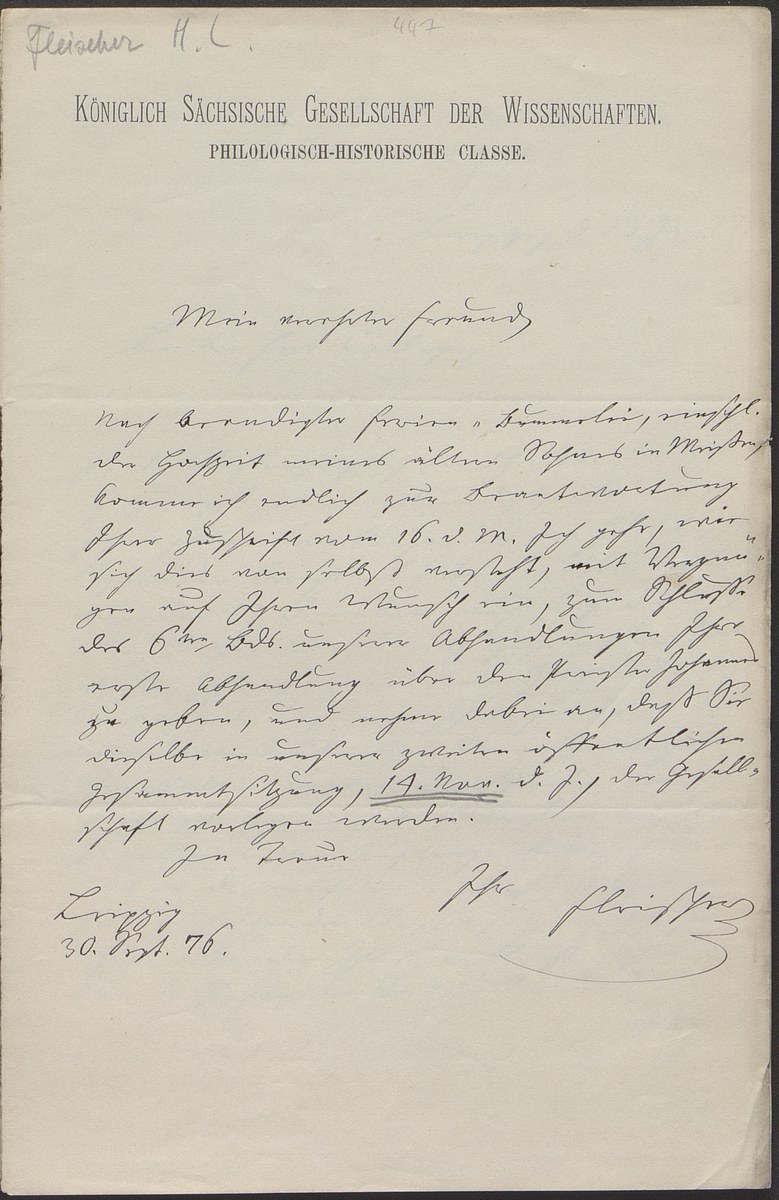 Fleischer H. L.
447
KÖNIGLICH SÄCHSISCHE GESELLSCHAFT DER WISSENSCHAFTEN.
PHILOLOGISCH-HISTORISCHE CLASSE.
Mein verehrter Freund,
Nach beendigter Ferien-Bummelei, einschl.
der Hochzeit meines ältern Sohnes in Meißen,
komme ich endlich zur Beantwortung
Ihrer Zuschrift vom 16. d. M. Ich gehe, wie
sich dies von selbst versteht, mit Vergnü-
gen auf Ihren Wunsch ein, zum Schlusse
des 6ten Bds. unserer Abhandlungen Ihre
erste Abhandlung über den Priester Johannes
zu geben, und nehme dabei an, daß Sie
dieselbe in unserer zweiten öffentlichen
Gesammtsitzung, 14. Nov. d. J., der Gesell-
schaft vorlegen werden.
In Treue
Ihr Fleischer
Leipzig
30. Sept. 76.